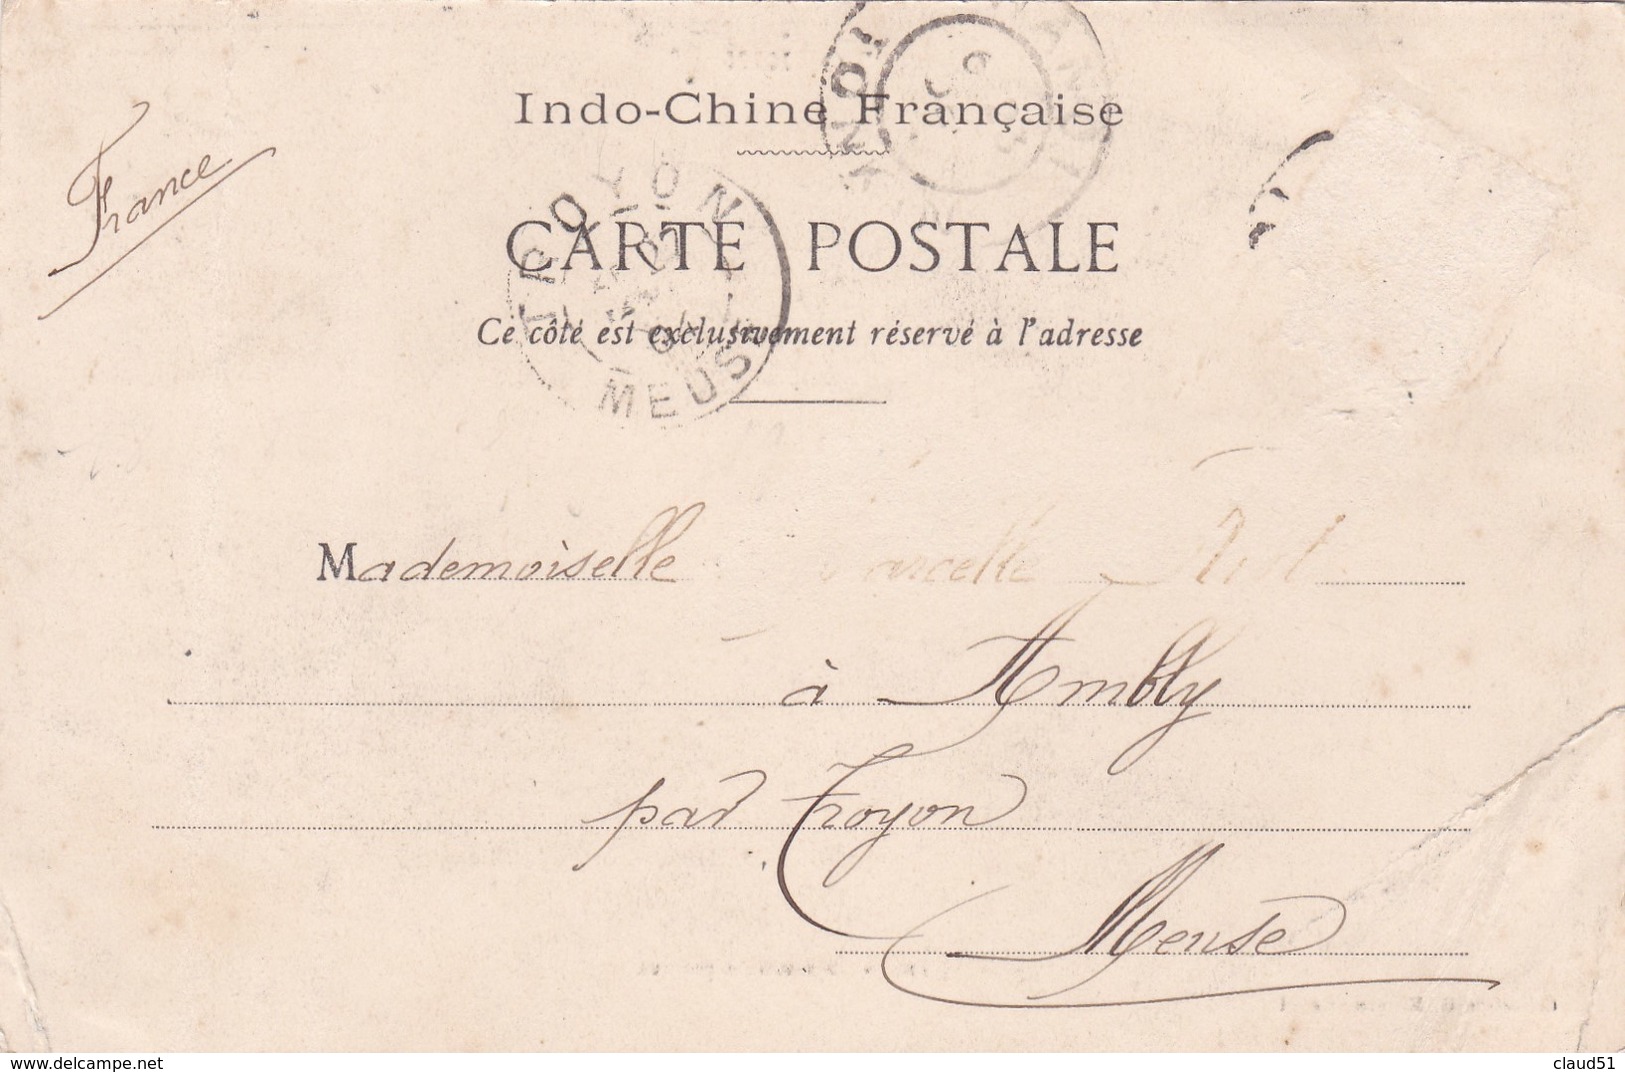 Indo-Chine Française
France
TROYON
CARTE POSTALE
Ce côté est exclusivement réservé à l'adresse
MEUSE
Mademoiselle Marcelle
à Ambly
par Troyon
Meuse
www.delcampe.net
claud51